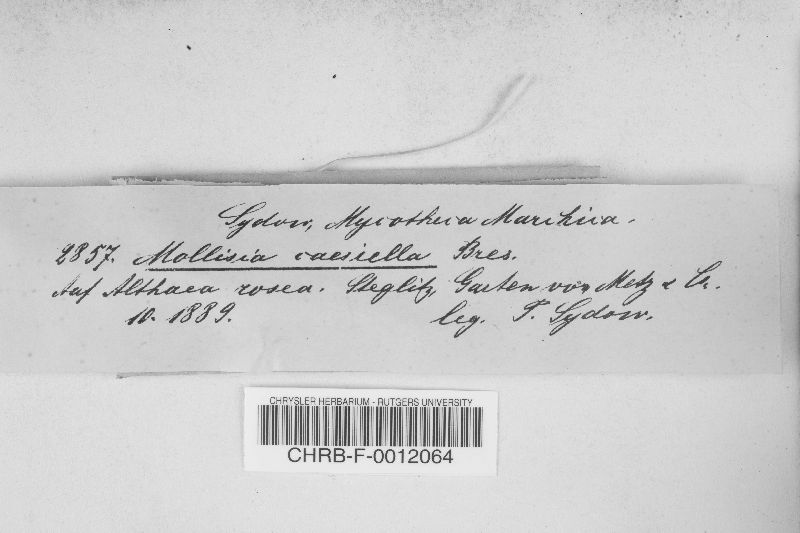 Sydow, Mycotheca Marchica.
2857. Mollisia caesiella Bres.
Auf Althaea rosea. Steglitz, Garten von Metz & Co.
10. 1889. leg. P. Sydow.
CHRYSLER HERBARIUM - RUTGERS UNIVERSITY
CHRB-F-0012064